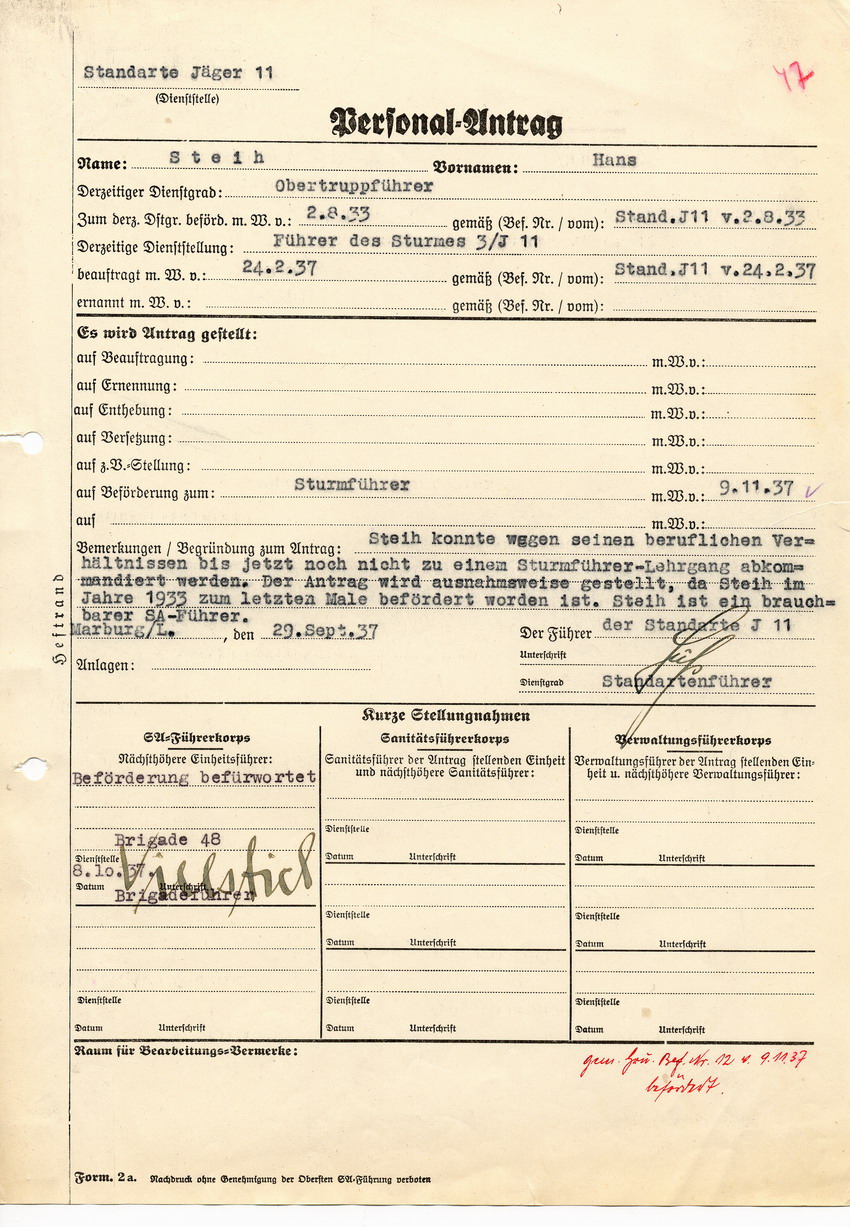 47
Standarte Jäger 11
(Dienststelle)
Personal-Antrag
Name: Steih Vornamen: Hans
Derzeitiger Dienstgrad: Obertruppführer
Zum derz. Dstgr. beförd. m. W. v.: 2.8.33 gemäß (Bef. Nr. / vom): Stand.J11 v.2.8.33
Derzeitige Dienststellung: Führer des Sturmes 3/J 11
beauftragt m. W. v.: 24.2.37 gemäß (Bef. Nr. / vom): Stand.J11 v.24.2.37
ernannt m. W. v.: gemäß (Bef. Nr. / vom):
Es wird Antrag gestellt:
auf Beauftragung: m.W.v.:
auf Ernennung: m.W.v.:
auf Enthebung: m.W.v.:
auf Versetzung: m.W.v.:
auf z.V.-Stellung: m.W.v.:
auf Beförderung zum: Sturmführer m.W.v.: 9.11.37
auf m.W.v.:
Bemerkungen / Begründung zum Antrag: Steih konnte wegen seinen beruflichen Ver=
hältnissen bis jetzt noch nicht zu einem Sturmführer-Lehrgang abkom=
mandiert werden. Der Antrag wird ausnahmsweise gestellt, da Steih im
Jahre 1933 zum letzten Male befördert worden ist. Steih ist ein brauch=
barer SA-Führer.
Heftrand
Marburg/L. , den 29.Sept.37 Der Führer der Standarte J 11
Unterschrift
Anlagen:
Dienstgrad Standartenführer
Kurze Stellungnahmen
SA-Führerkorps
Nächsthöhere Einheitsführer:
Beförderung befürwortet
Brigade 48
Dienststelle
8.10.37.
Datum Unterschrift
Brigadeführer
Dienststelle
Datum Unterschrift
Sanitätsführerkorps
Sanitätsführer der Antrag stellenden Einheit
und nächsthöhere Sanitätsführer:
Dienststelle
Datum Unterschrift
Dienststelle
Datum Unterschrift
Dienststelle
Datum Unterschrift
Verwaltungsführerkorps
Verwaltungsführer der Antrag stellenden Ein=
heit u. nächsthöhere Verwaltungsführer:
Dienststelle
Datum Unterschrift
Dienststelle
Datum Unterschrift
Dienststelle
Datum Unterschrift
Raum für Bearbeitungs-Vermerke:
gem. Gru. Bef. Nr. 12 v. 9.11.37
befördert.
Form. 2a. Nachdruck ohne Genehmigung der Obersten SA-Führung verboten